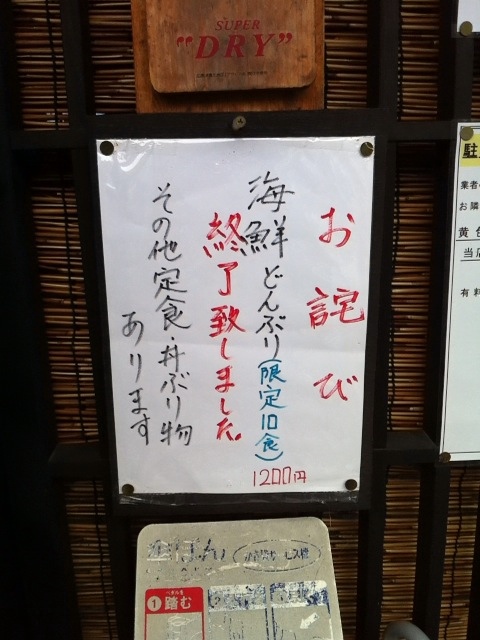 SUPER
"DRY"
お詫び
海鮮どんぶり(限定10食)
1200円
終了致しました。
その他定食・丼ぶり物
あります
駐
業者
お隣
黄色
当店
有料
1 踏む